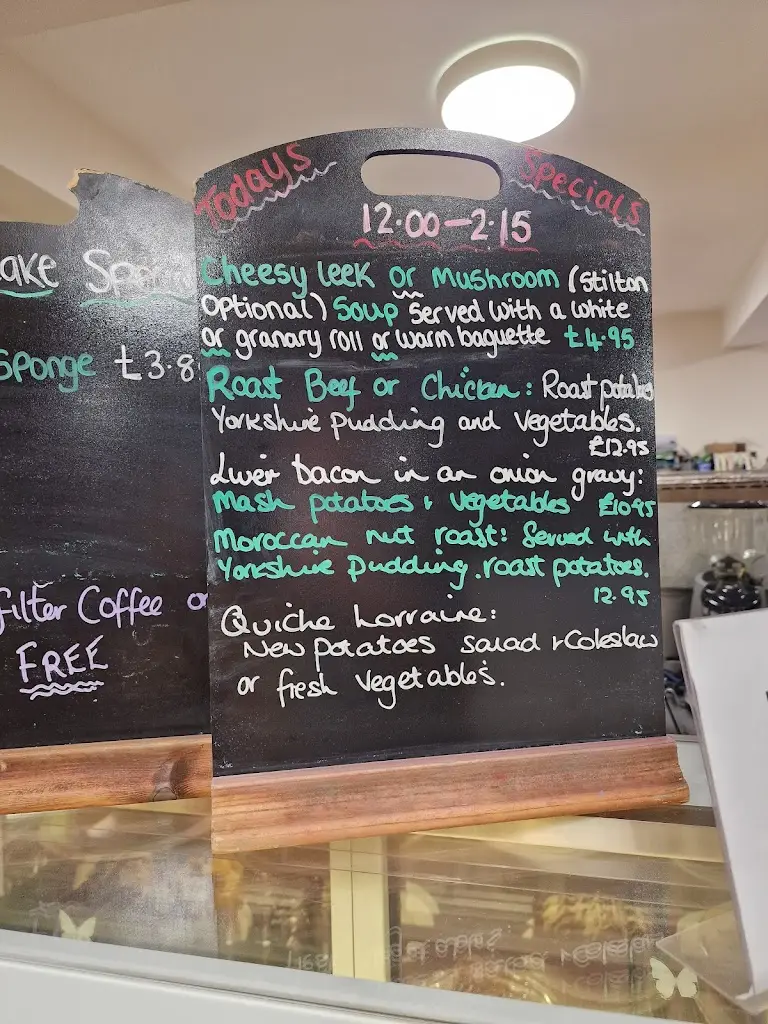 Todays Specials
12.00-2.15
Cheesy leek or Mushroom (Stilton
Optional) Soup Served with a white
or granary roll or warm baguette £4.95
Roast Beef or Chicken: Roast potatoes
Yorkshire pudding and vegetables.
£12.95
Liver bacon in an onion gravy:
Mash potatoes + vegetables £10.95
Moroccan nut roast: Served with
Yorkshire pudding. roast potatoes.
12.95
Quiche Lorraine:
New potatoes salad + Coleslaw
or fresh vegetables.
ake
Sponge £3.8
filter Coffee or
FREE